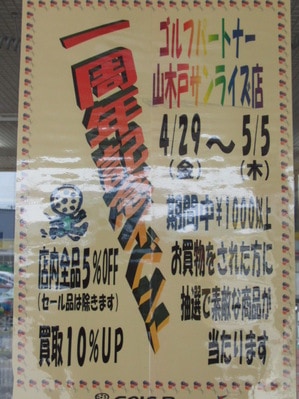 ゴルフパートナー
山木戸サンライズ店
4/29～5/5
(金) (木)
一周年記念イベント
期間中¥1000以上
お買物をされた方に
抽選で素敵な商品が
当たります
店内全品5%OFF
(セール品は除きます)
買取10%UP